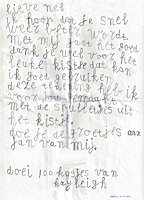 lieve nel
ik hoop dat je snel
weer beter wordt
met mij gaat het goed
dank je wel voor het
leuke kistje dat kan
ik goed gebruiken
deze tekening heb ik
voor jou gemaakt
met de spulletjes uit
het kistje
doe je de groetjes aan
jan van mij.
doei 100 kusjes van
kayleigh